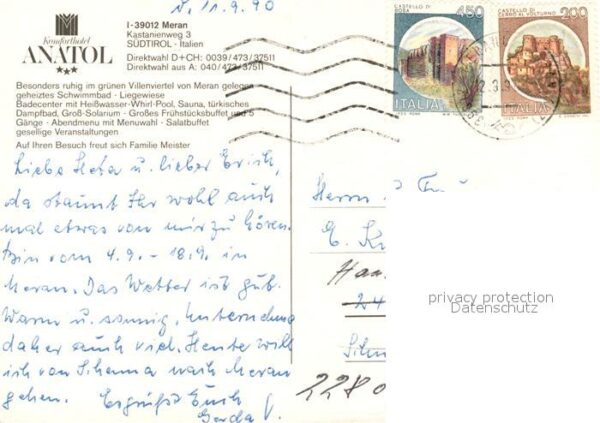 V. 11.9.90
Komforthotel
ANATOL
I-39012 Meran
Kastanienweg 3
SÜDTIROL - Italien
Direktwahl D+CH: 0039/473/37511
Direktwahl aus A: 040/473/37511
Besonders ruhig im grünen Villenviertel von Meran gelegen
geheiztes Schwimmbad - Liegewiese
Badecenter mit Heißwasser-Whirl-Pool, Sauna, türkisches
Dampfbad, Groß-Solarium - Großes Frühstücksbuffet und 5
Gänge - Abendmenu mit Menuwahl - Salatbuffet
gesellige Veranstaltungen
Auf Ihren Besuch freut sich Familie Meister
CASTELLO DI
450
ITALIA
CASTELLO DI
CERRO AL VOLTURNO
200
ITALIA
Liebe Heta u. lieber Erich,
da staunt Ihr wohl auch
mal etwas von mir zu hören.
Bin vom 4.9. - 18.9. in
Meran. Das Wetter ist gut.
Warm u. sonnig. Unternehme
daher auch viel. Heute will
ich von Schenna nach Meran
gehen. Es grüßt Euch
Gerda
Herrn
E.
24
2280
privacy protection
Datenschutz